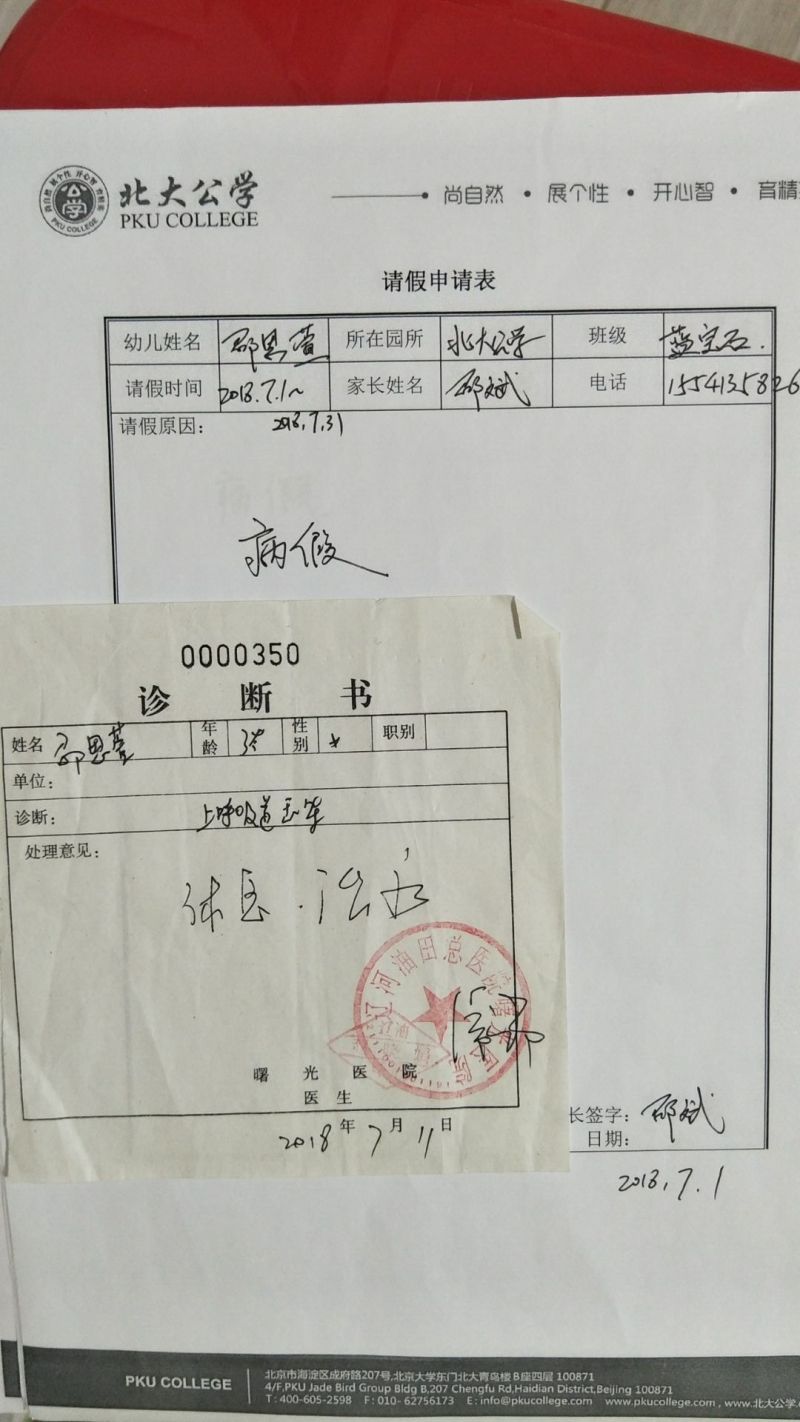 北大公学
PKU COLLEGE
尚自然 • 展个性 • 开心智 • 育精
请假申请表
幼儿姓名 邵思萱 所在园所 北大公学 班级 蓝宝石.
请假时间 2018.7.1~ 家长姓名 邵斌 电话 1554135826
请假原因: 2018.7.31
病假
0000350
诊 断 书
姓名 邵思萱 年龄 3岁 性别 女 职别
单位:
诊断: 上呼吸道
处理意见:
休息.治疗
辽河油田总医院曙光医院
曙 光 医 院
医 生
2018年7月11日
长签字: 邵斌
日期:
2018.7.1
PKU COLLEGE
北京市海淀区成府路207号,北京大学东门北大青鸟楼B座四层 100871
4/F,PKU Jade Bird Group Bldg B,207 Chengfu Rd,Haidian District,Beijing 100871
T : 400-605-2598 F : 010- 62756173 E : info@pkucollege.com www.pkucollege.com , www.北大公学.